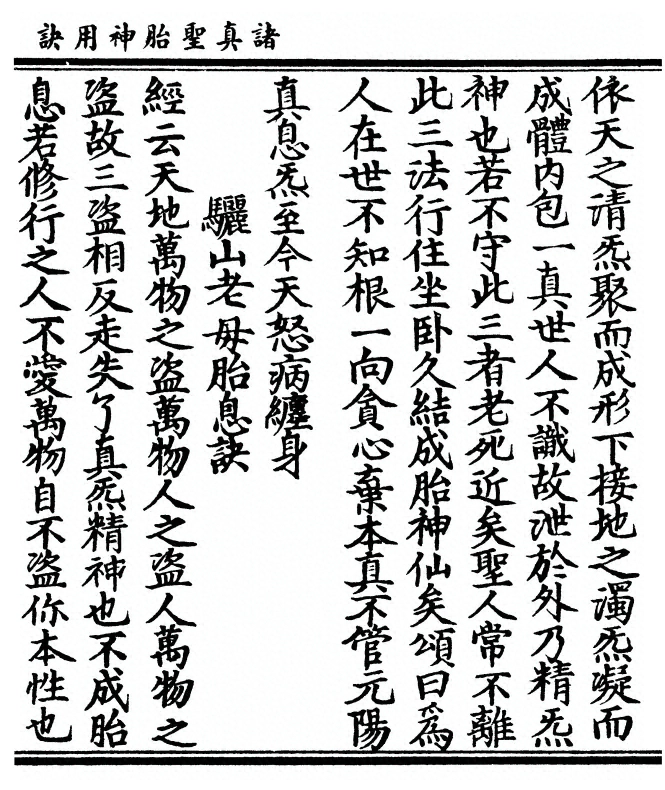 諸真聖胎神用訣
依天之清炁聚而成形下接地之濁炁凝而
成體内包一真世人不識故泄於外乃精炁
神也若不守此三者老死近矣聖人常不離
此三法行住坐卧久結成胎神仙矣頌曰為
人在世不知根一向貪心棄本真不管元陽
真息炁至今天怒病纏身
驪山老母胎息訣
經云天地萬物之盜萬物人之盜人萬物之
盜故三盜相反走失了真炁精神也不成胎
息若修行之人不愛萬物自不盜你本性也